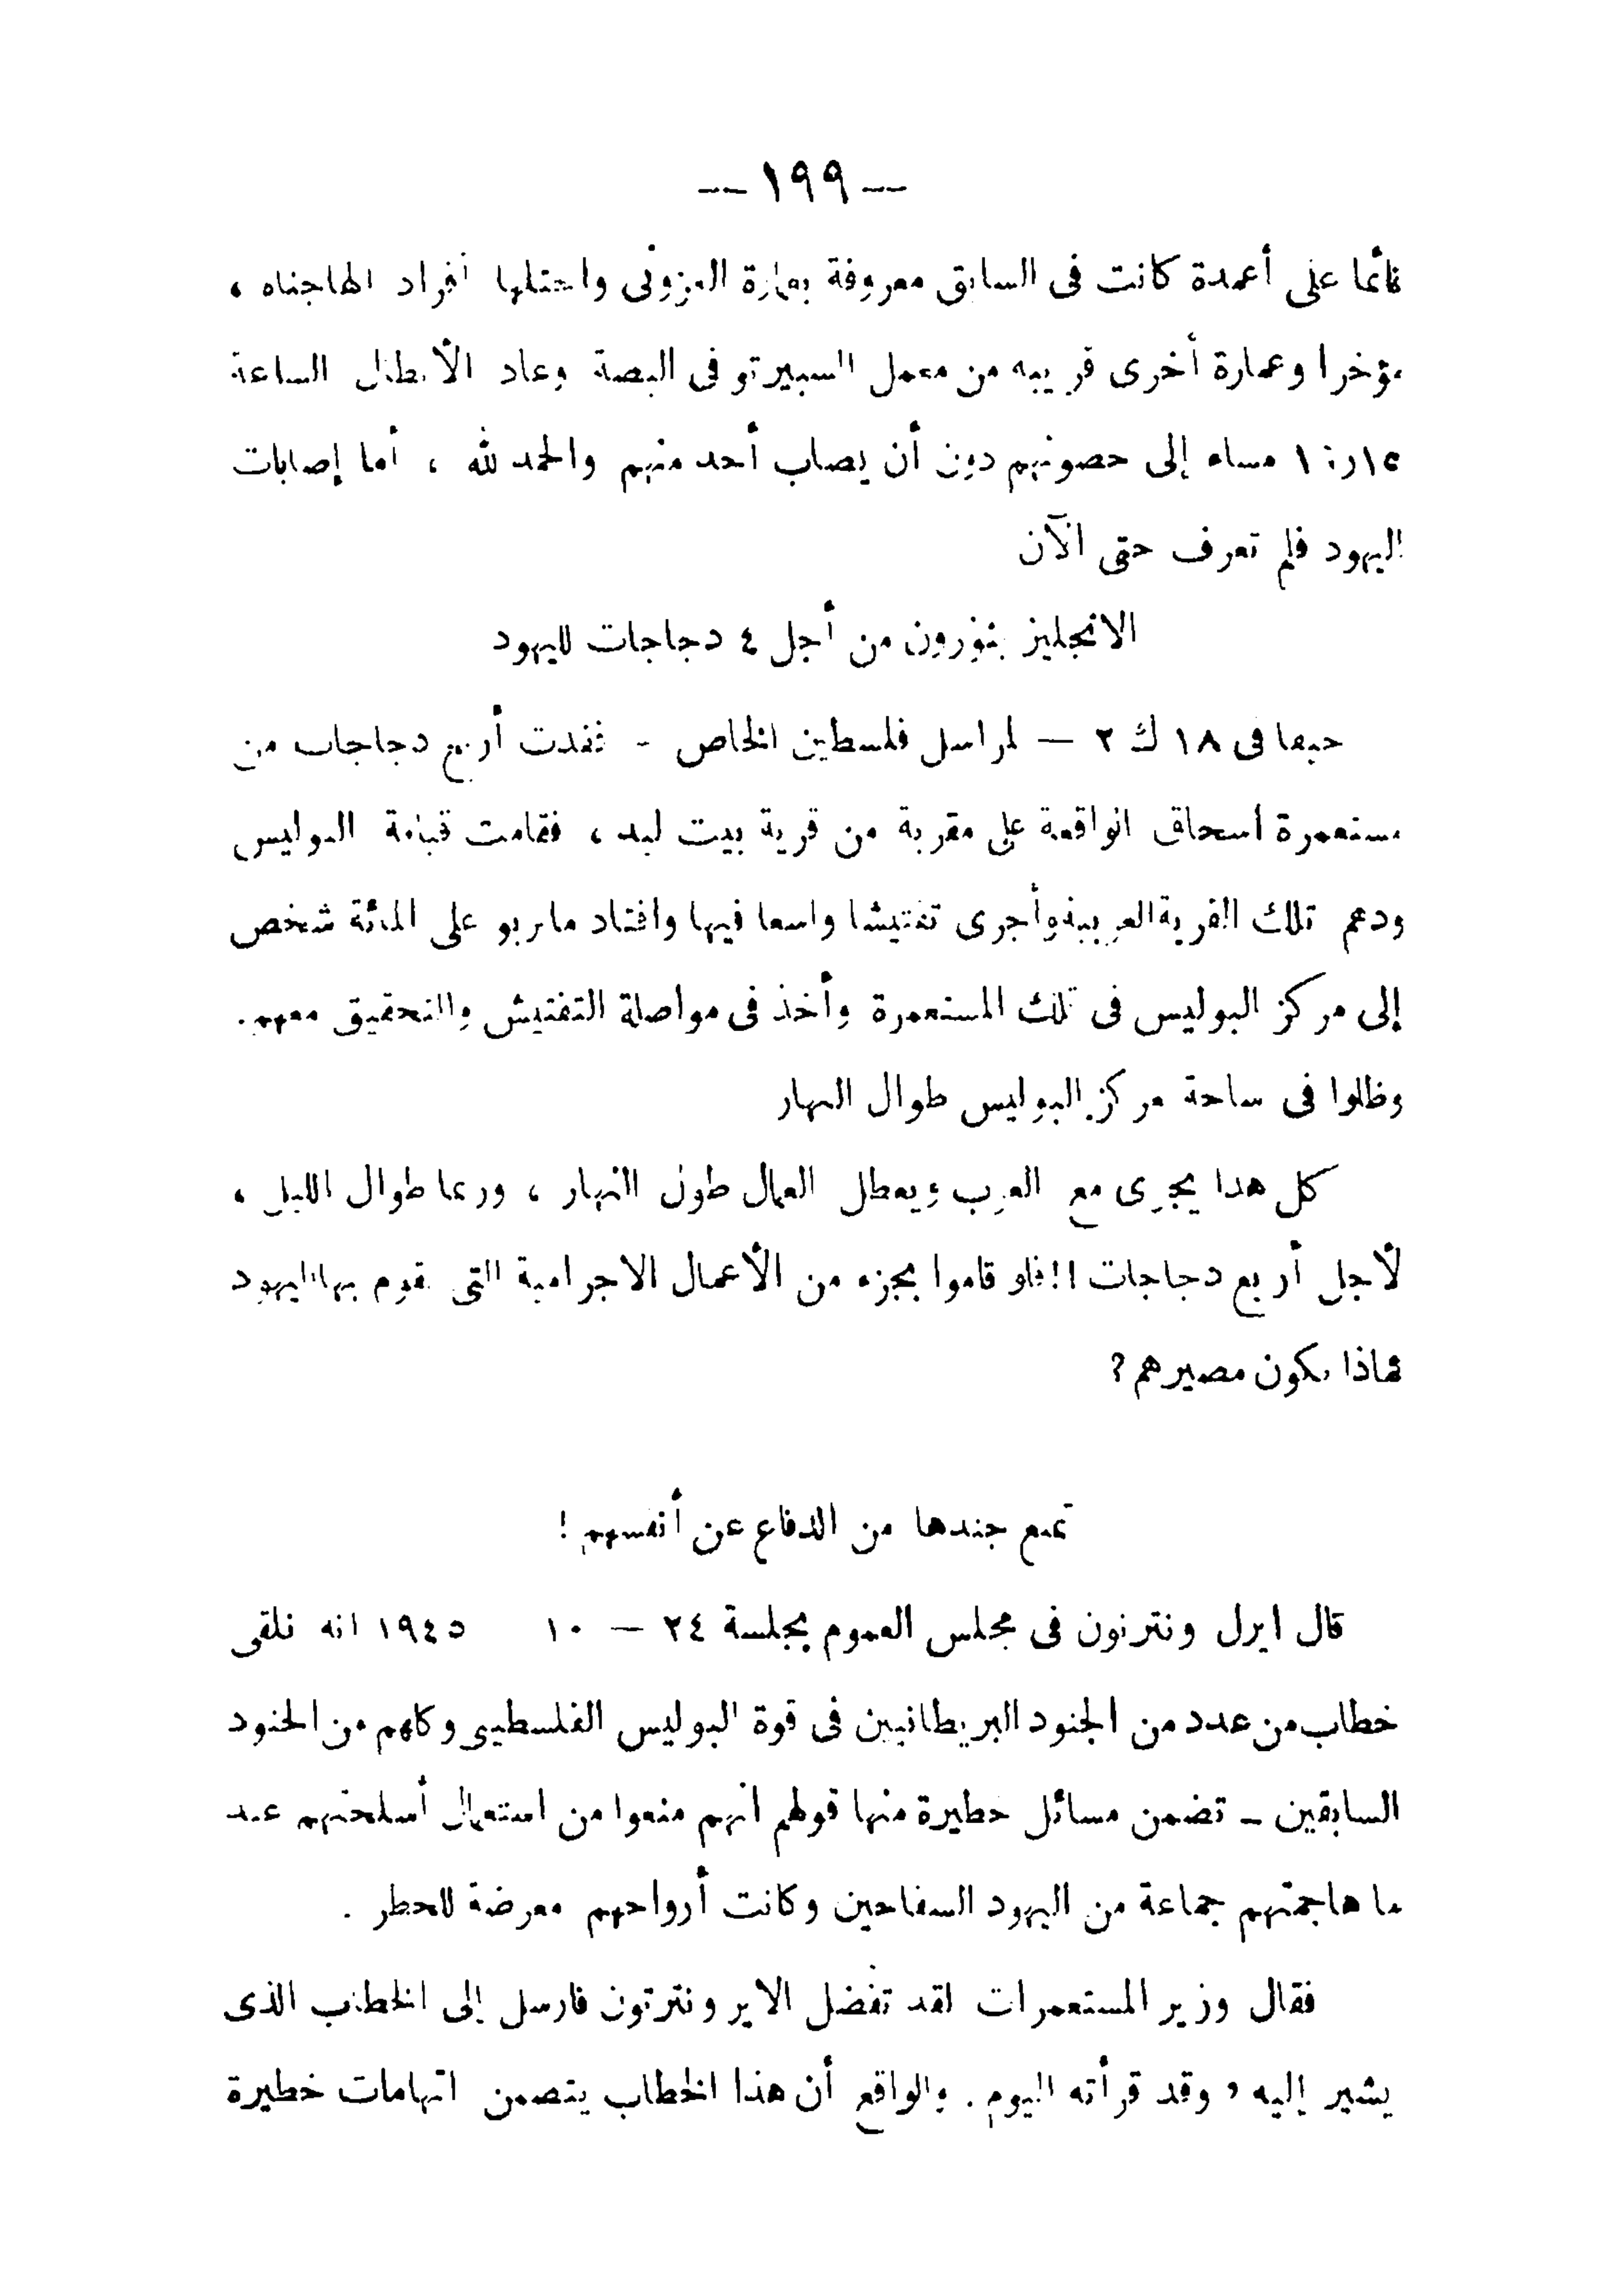 — ١٩٩ —
قائما على أعمدة كانت فى السابق معروفة بعمارة العزونى واحتلها أفراد الهاجناه ،
مؤخرا وعمارة أخرى قريبه من معمل السبيرتو فى البصة وعاد الأبطال الساعة
مساء إلى حصونهم دون أن يصاب أحد منهم والحمد لله ، أما إصابات
اليهود فلم تعرف حتى الآن
الانجليز يثورون من أجل ٤ دجاجات لليهود
حيفا فى ١٨ ك ٢ — لمراسل فلسطين الخاص - فقدت أربع دجاجات من
مستعمرة اسحاق الواقعة على مقربة من قرية بيت ليد ، فقامت قيامة البوليس
ودهم تلك القرية العربية وأجرى تفتيشا واسعا فيها واقتاد ما يربو على المائة شخص
إلى مركز البوليس فى تلك المستعمرة وأخذ فى مواصلة التفتيش والتحقيق معهم .
وظلوا فى ساحة مركز البوليس طوال النهار
كل هذا يجرى مع العرب ويعطل العمال طول النهار ، وربما طوال الليل ،
لأجل أربع دجاجات !! فلو قاموا بجزء من الأعمال الاجرامية التى يقوم بها اليهود
فماذا يكون مصيرهم ؟
تمنع جندها من الدفاع عن أنفسهم !
قال ايرل ونترتون فى مجلس العموم بجلسة ٢٤ — ١٠ ١٩٤٥ انه تلقى
خطاب من عدد من الجنود البريطانيين فى قوة البوليس الفلسطينى وكلهم من الجنود
السابقين - تضمن مسائل خطيرة منها قولهم انهم منعوا من استعمال أسلحتهم عند
ما هاجمتهم جماعة من اليهود السفاحين وكانت أرواحهم معرضة للخطر .
فقال وزير المستعمرات لقد تفضل الاير ونترتون فارسل إلى الخطاب الذى
يشير إليه ، وقد قرأته اليوم . والواقع أن هذا الخطاب يتضمن اتهامات خطيرة